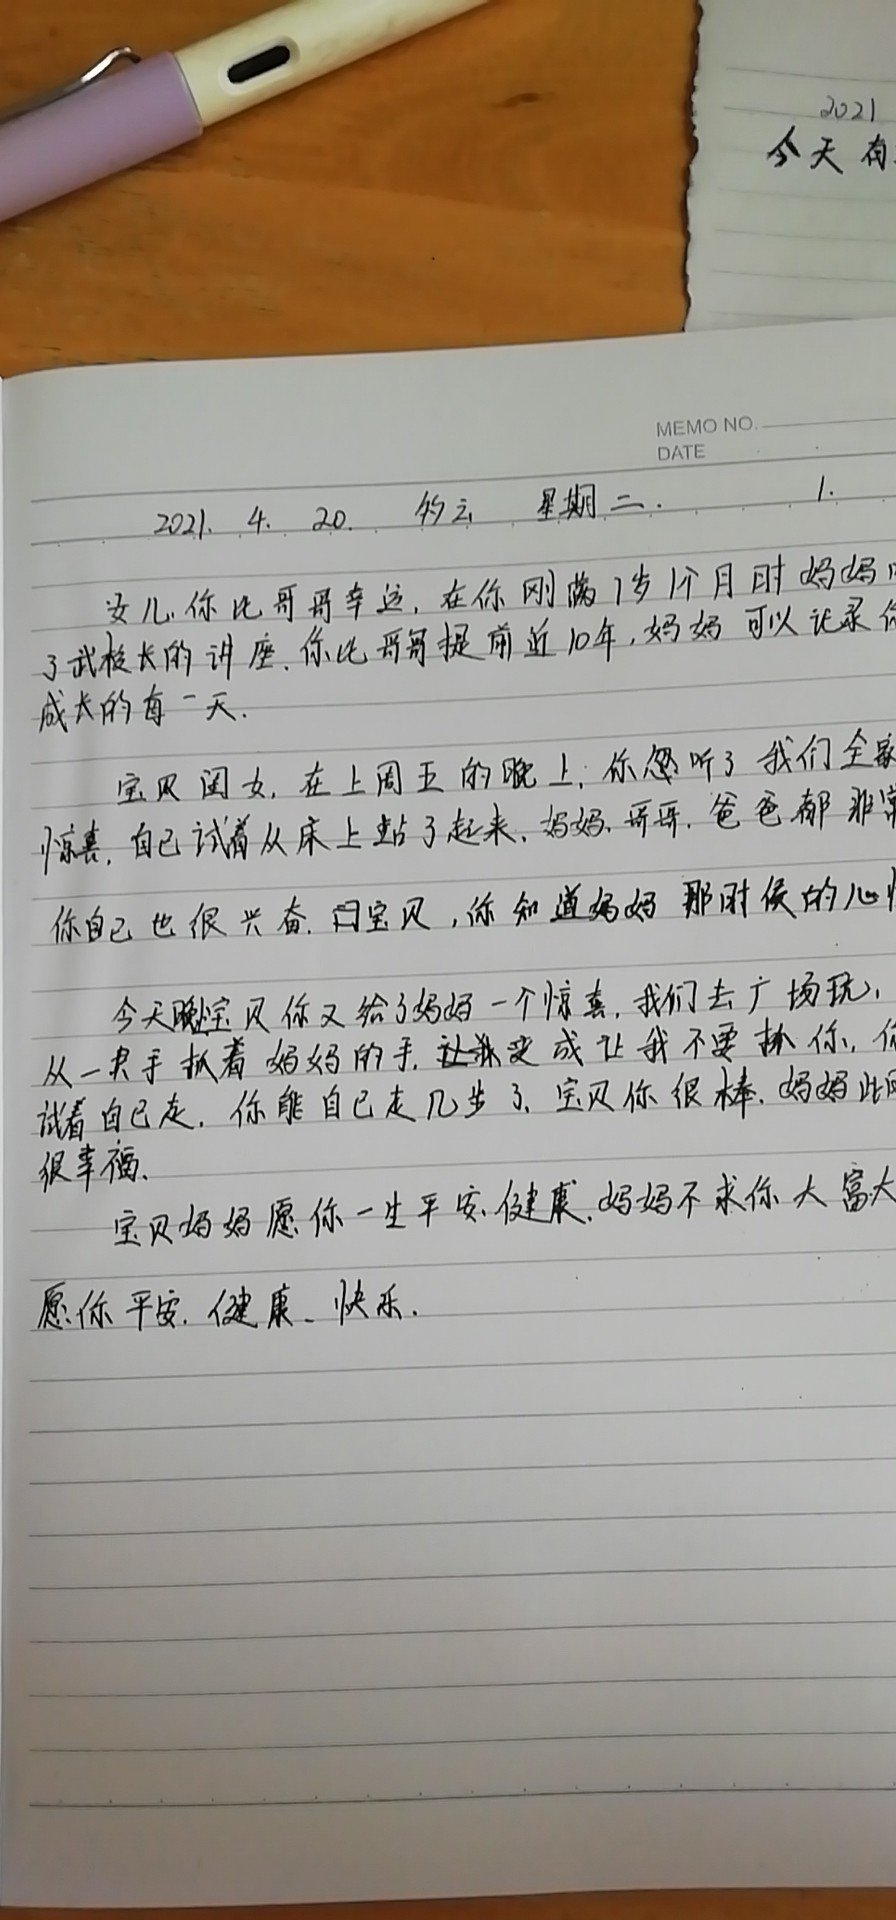 2021
今天有
MEMO NO.
DATE
2021. 4. 20. 星期二. 1.
女儿.你比哥哥幸运,在你刚满1岁1个月时妈妈
了武校长的讲座.你比哥哥提前近10年,妈妈可以记录你
成长的每一天.
宝贝闺女,在上周五的晚上,你忽听了我们全家
惊喜,自己试着从床上站了起来,妈妈、哥哥、爸爸都非常
你自己也很兴奋.宝贝,你知道妈妈那时候的心情
今天晚宝贝你又给了妈妈一个惊喜,我们去广场玩,
从一只手抓着妈妈的手,变成让我不要抓你,你
试着自己走,你能自己走几步了,宝贝你很棒.妈妈此
很幸福.
宝贝妈妈愿你一生平安.健康.妈妈不求你大富大
愿你平安.健康、快乐.